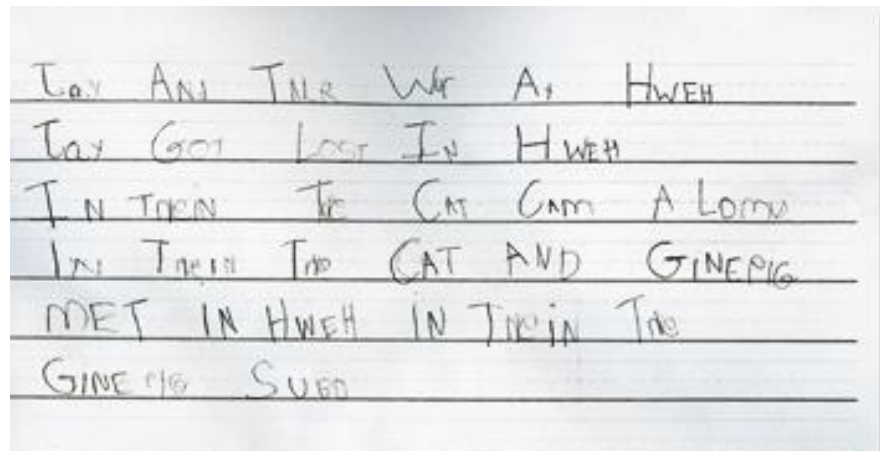 Tay And Thr Wr At HWEH
Tay GOT Lost In HWEH
In Then The CAT Cam A Long
In Then The CAT AND GINEPIG
MET IN HWEH IN Then The
GINEPIG SUED